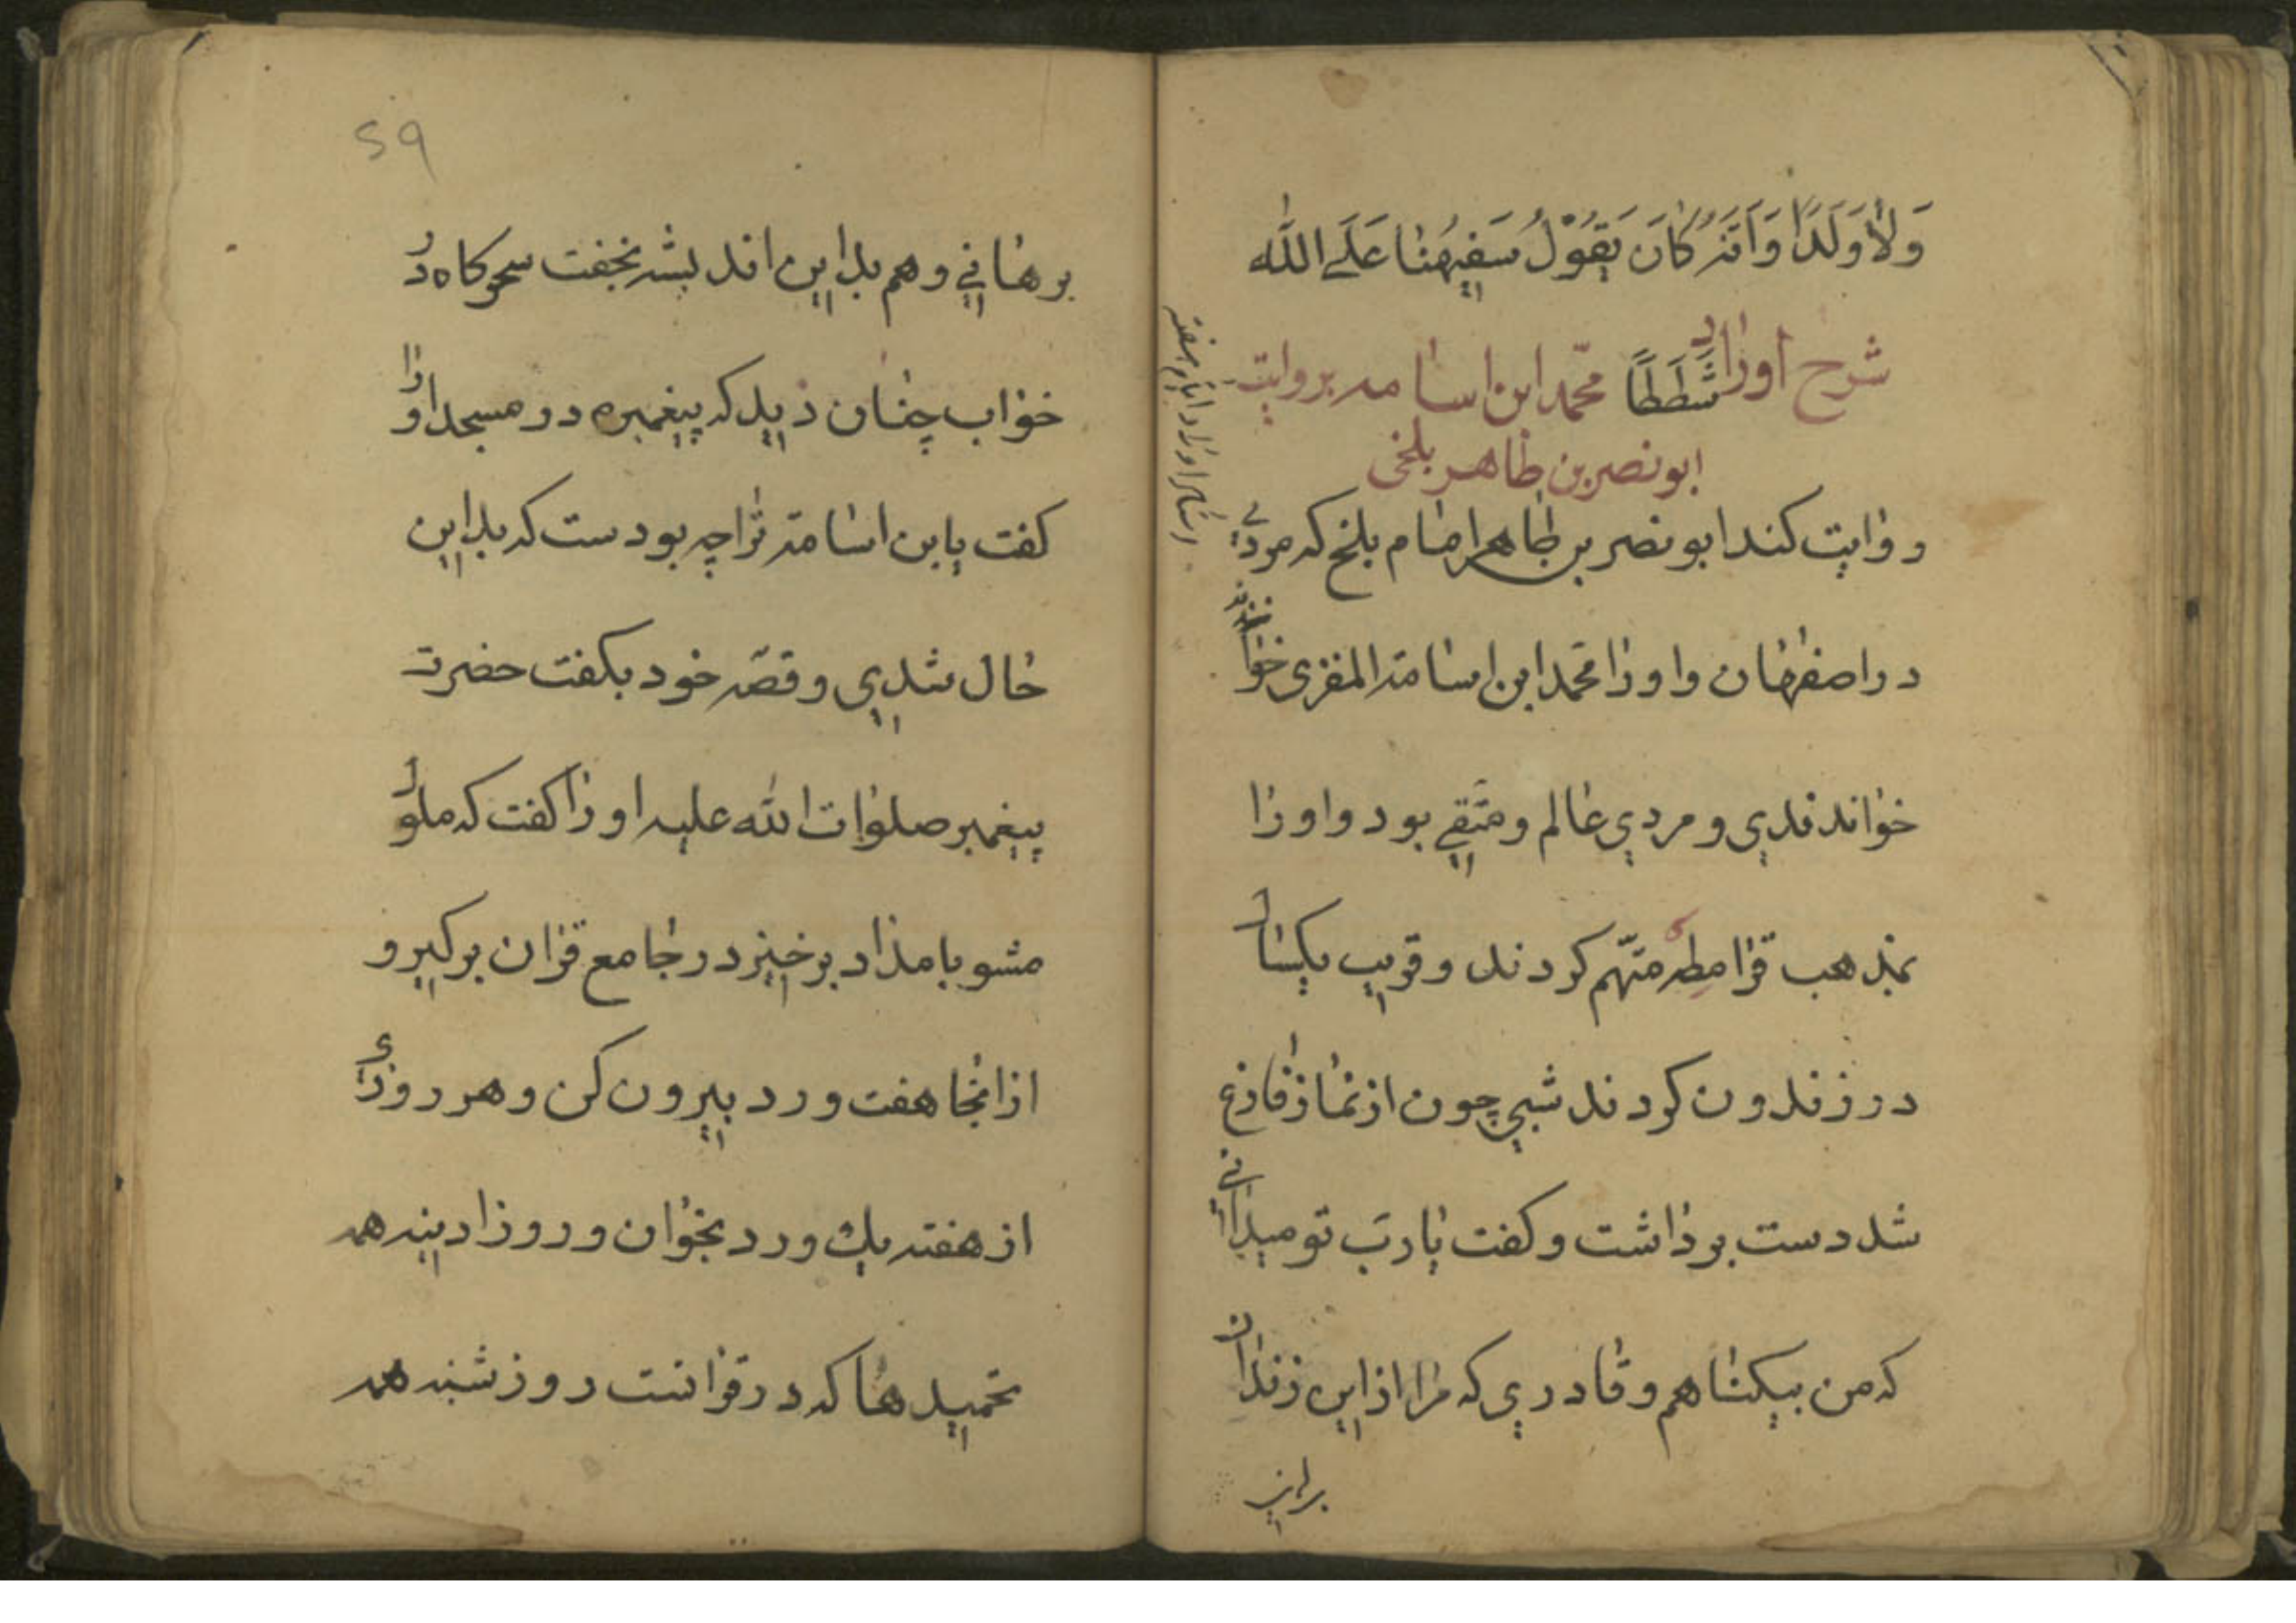 وَلَا وَلَدًا وَاَنَّهُ كَانَ يَقُوْلُ سَفِيهُنَا عَلَى اللّٰه
شرح اوراد شَطَطًا محمّد ابن اسامه بروايت
ابونصر بن طاهر بلخى
روايت كند ابونصر بن طاهر امام بلخ كه مردي
در اصفهان و اورا محمد ابن اسامة المقرى خوا
خواندندي و مردي عالم و متقي بود و اورا
بمذهب قرامطه متّهم كردند و قريب يكسال
در زندون كردند شبي چون از نماز فارغ
شد دست برداشت و كفت يارب تو ميداني
كه من بيكناهم و قادري كه مرا ازين زندان
برهاني
59
برهاني و هم بدين انديشه نخفت سحركاه در
خواب چنان ديد كه پيغمبره در مسجد اورا
كفت يابن اسامة ترا چه بودست كه بدين
حال شدي و قصّه خود بكفت حضرت
پيغمبر صلوات اللّه عليه اورا كفت كه ملول
مشو بامداد برخيز در جامع قران بركير و
ازانجا هفت ورد بيرون كن و هر روزي
از هفته يك ورد بخوان و روز ادينه همه
تحميدها كه در قرانست روز شنبه همه